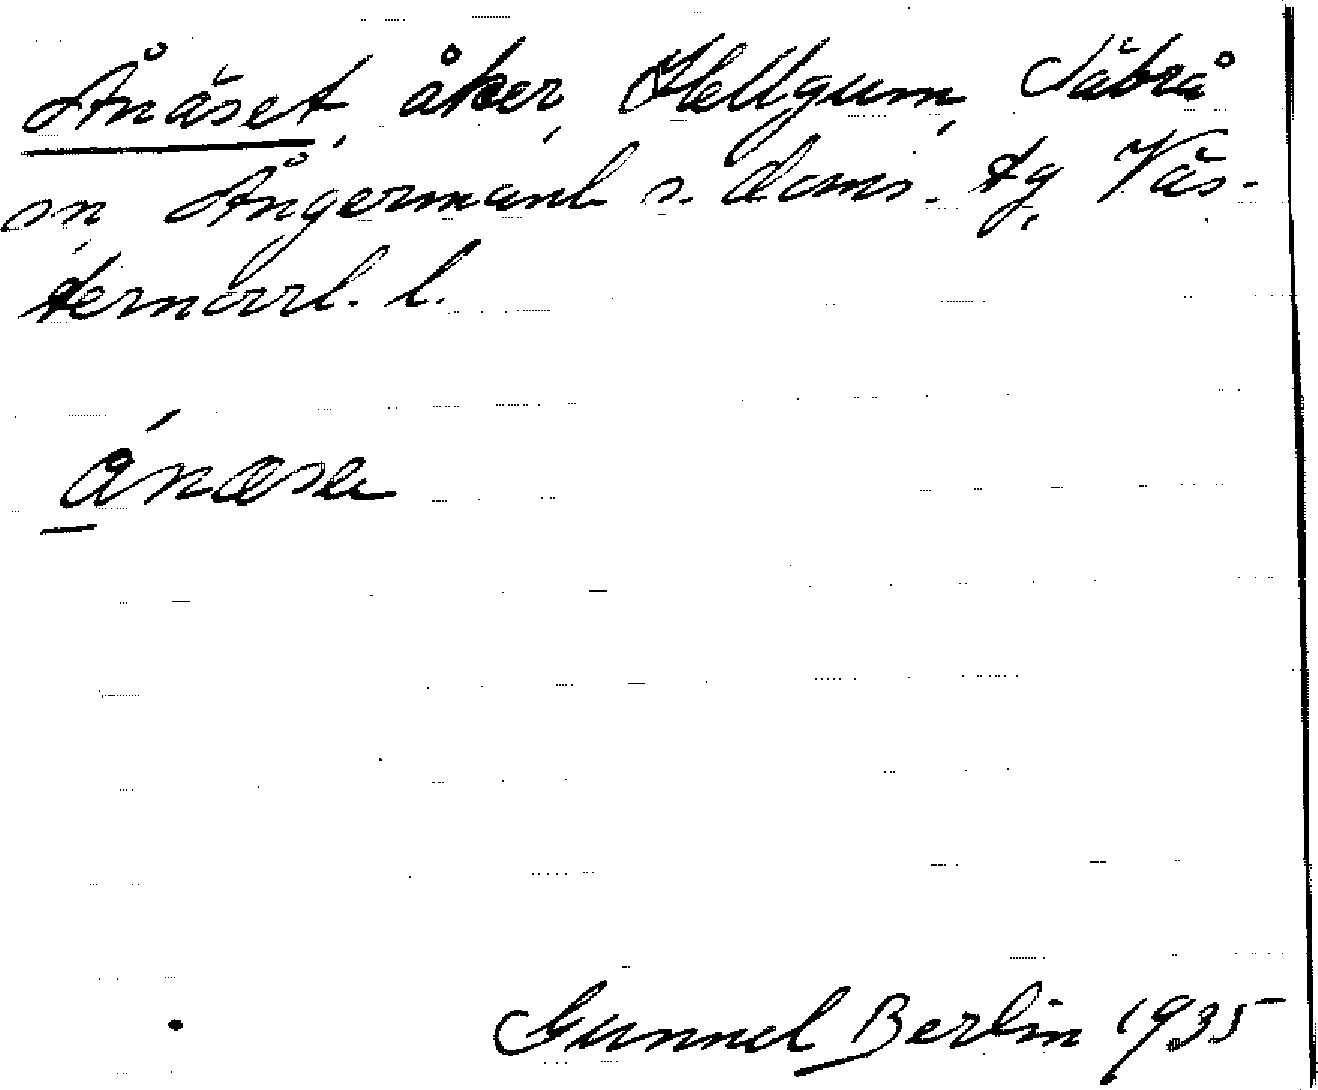 Ånäset, åker, Hellgum, Säbrå
sn, Ångermanl. s. doms. tg, Väs-
ternorrl. l.
ánæsa
Gunnel Berlin 1935